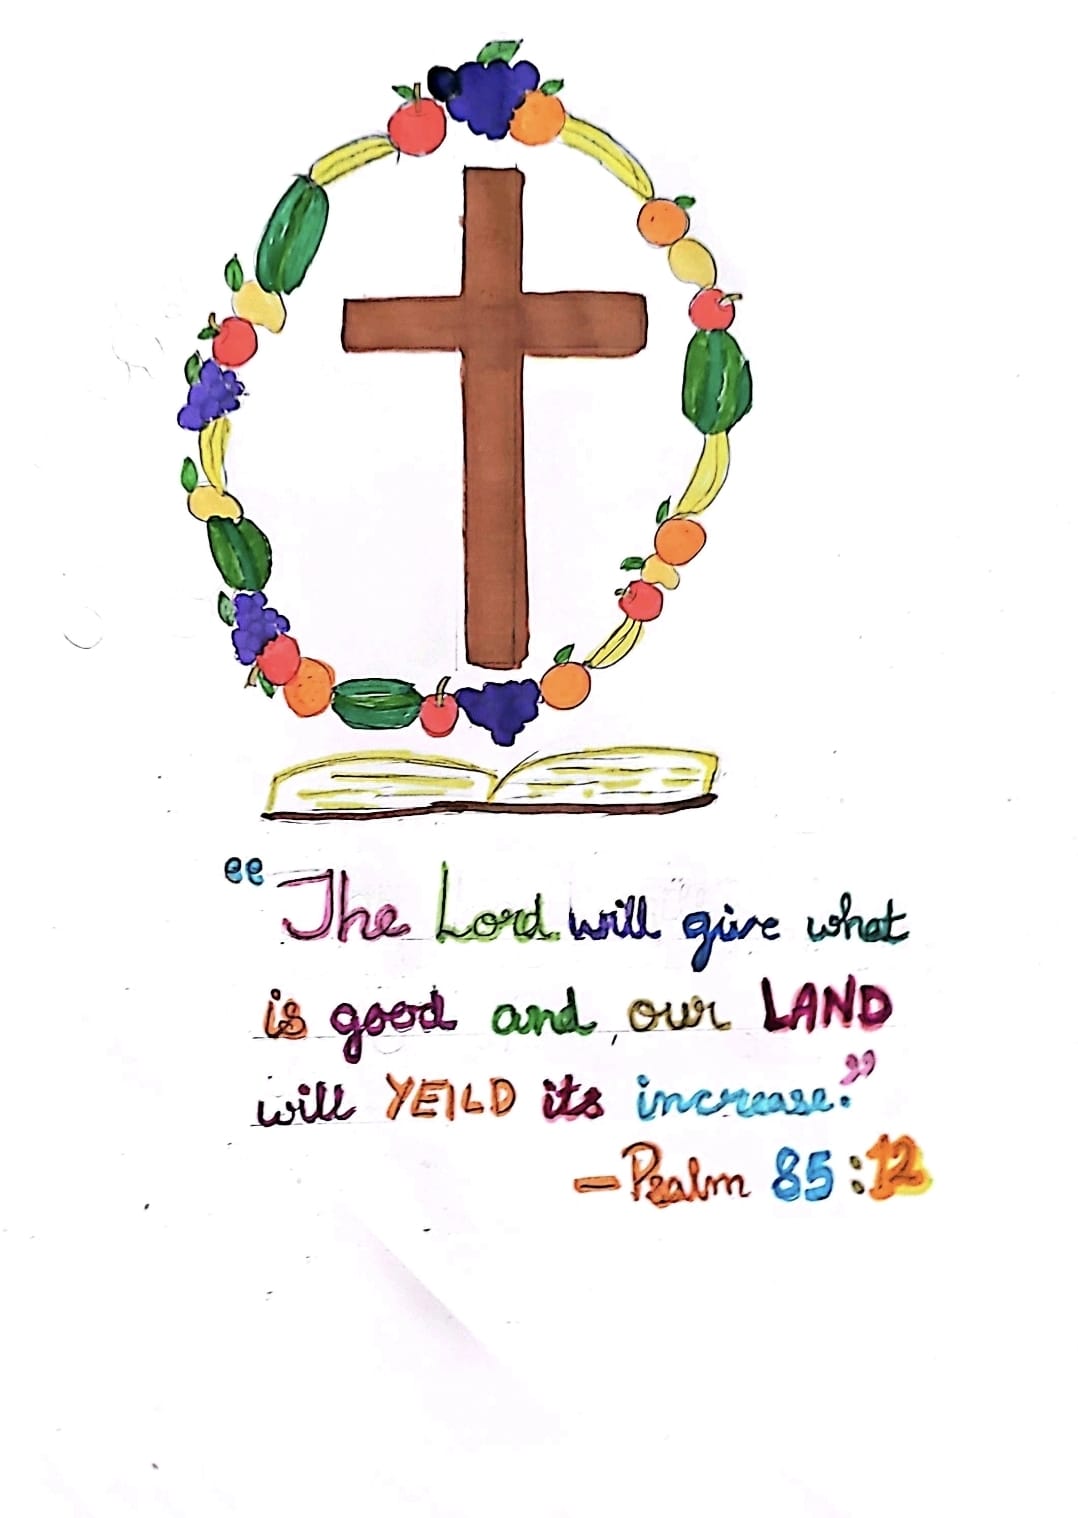 “The Lord will give what
is good and our LAND
will YEILD its increase.”
—Psalm 85:12